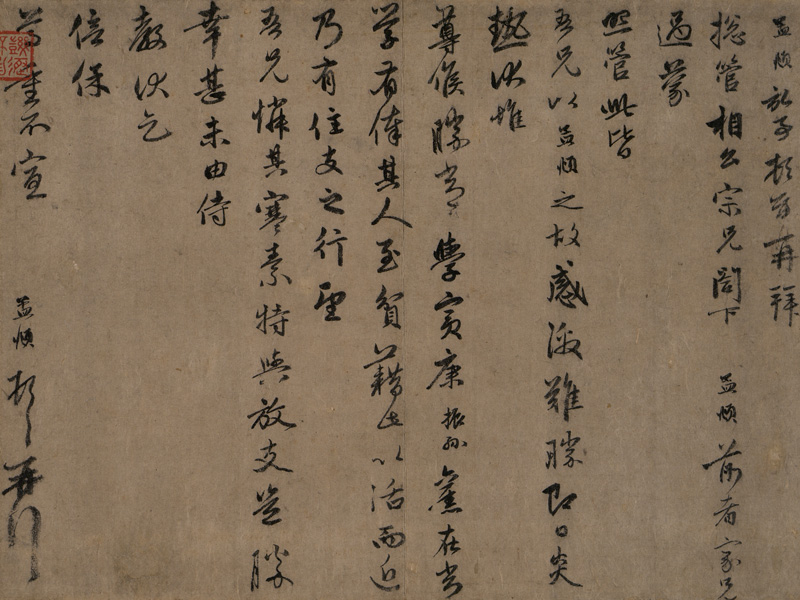 孟頫記事頓首再拜
總管相公宗兄閣下 孟頫前者家兄
過蒙
照管此皆
吾兄以孟頫之故感激難勝即日炎
熱伏惟
尊候勝常々學賓康振孫舊在常
學有俸其人至貧藉此以活而近
乃有住支之行望
吾兄憐其寒素特與放支豈勝
幸甚未由侍
教伏乞
倍保
尊重不宣 孟頫頓首再拜